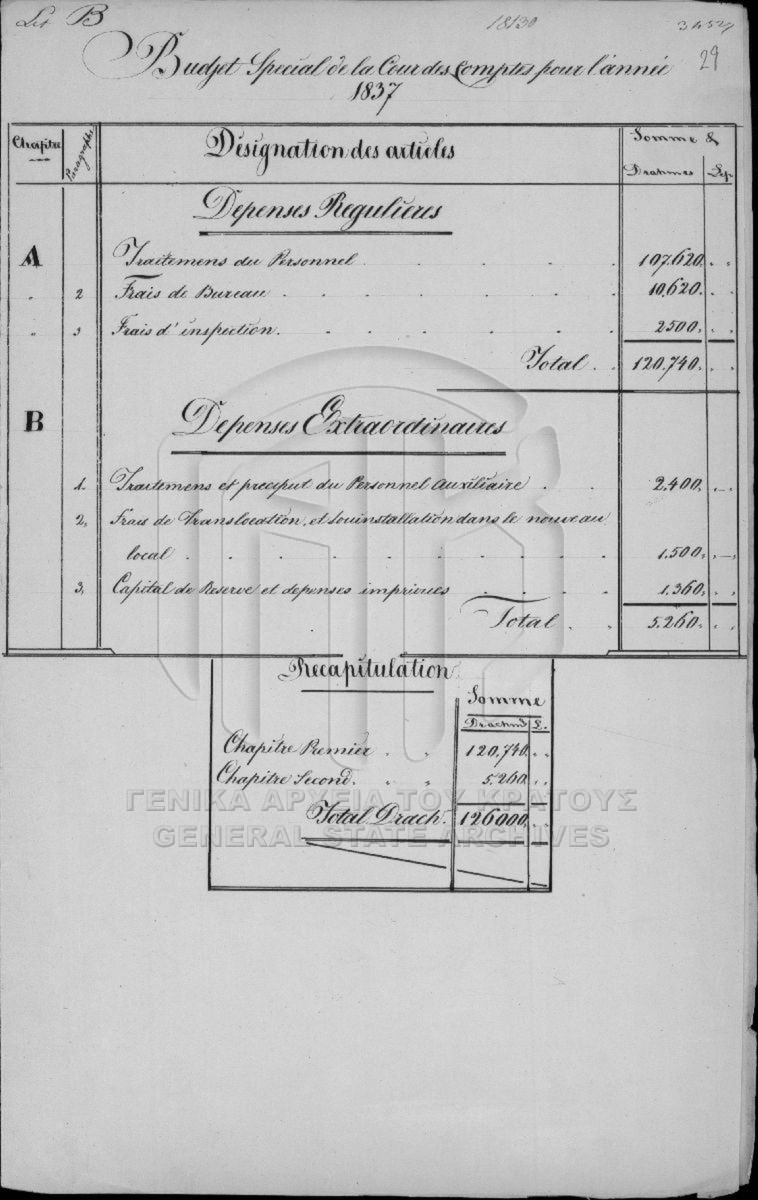 Lit B 18130 34527
29
Budjet Special de la Cour des Comptes pour l'année
1837
Chapitre Paragraphe Désignation des articles Somme &
Drahmes Lep
Depenses Regulieres
A Traitemens du Personnel . . . . . 107.620. . .
" 2 Frais de Bureau . . . . . . . . 10,620. . .
" 3 Frais d'inspection. . . . . . . . 2500. . .
Total . . 120.740. . .
B Depenses Extraordinaires
1. Traitemens et preciput du Personnel Auxiliaire . . 2.400.
2. Frais de Translocation, et dans le nouveau
local . . . . . . . . . . . 1.500.
3. Capital de Reserve et depenses imprevues . . . . 1.360. . .
Total . . 5.260. . .
Recapitulation
Somme
Drachm L.
Chapitre Premier . . 120.740. . .
Chapitre Second. . . 5.260. . .
Total Drach. 126000. . .
ΓΕΝΙΚΑ ΑΡΧΕΙΑ ΤΟΥ ΚΡΑΤΟΥΣ
GENERAL STATE ARCHIVES